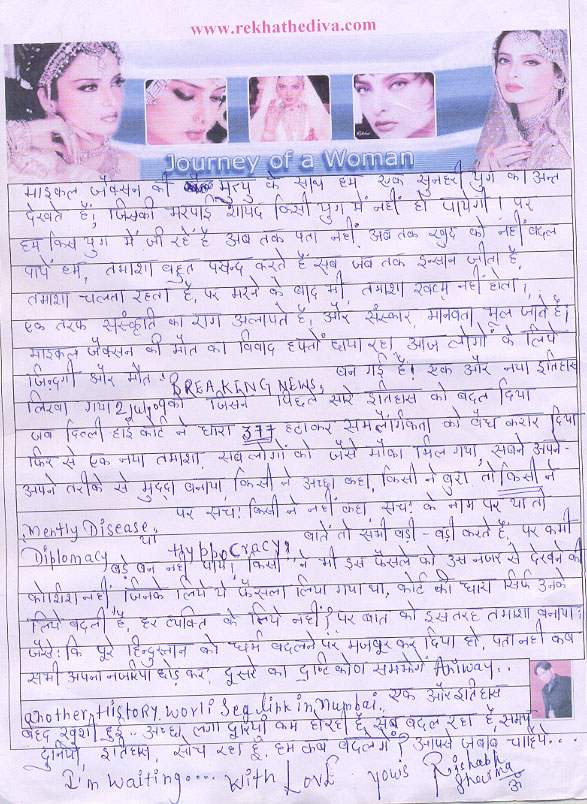 www.rekhathediva.com
Journey of a Woman
माइकल जैक्सन की मृत्यु के साथ हम एक सुनहरी युग का अन्त
देखते हैं, जिसकी भरपाई शायद किसी युग में नहीं हो पायेगी। पर
हम किस युग में जी रहें है अब तक पता नहीं, अब तक खुद को नहीं बदल
पाये हम, तमाशा बहुत पसन्द करते हैं सब जब तक इन्सान जीता है,
तमाशा चलता रहता है, पर मरने के बाद भी, तमाशा खत्म नहीं होता।
एक तरफ संस्कृति का राग अलापते है, और संस्कार, मानवता भूल जाते हैं।
माइकल जैक्सन की मौत का विवाद हफ्तों छाया रहा आज लोगों के लिये
जिन्दगी और मौत "BREAKING NEWS" बन गई है। एक और नया इतिहास
लिखा गया 2 july 09 को जिसने पिछले सारे इतिहास को बदल दिया
जब दिल्ली हाई कोर्ट ने धारा 377 हटाकर समलैंगिकता को वैध करार दिया
फिर से एक नया तमाशा, सब लोगों को जैसे मौका मिल गया, सबने अपने-
अपने तरीके से मुददा बनाया, किसी ने अच्छा कहा, किसी ने बुरा तो किसी ने
Mently Disease, पर सच! किसी ने नहीं कहा, सच! के नाम पर या तो
Diplomacy या Hyppocracy, बातें तो सभी बड़ी-बड़ी करते हैं, पर कभी
बड़े बन नहीं पाये। किसी ने भी इस फैसले को उस नजर से देखने की
कोशिश नहीं, जिनके लिये ये फैसला लिया गया था, कोर्ट की धारा सिर्फ उनके
लिये बदली है, हर व्यक्ति के लिये नहीं? पर बात को इस तरह तमाशा बनाया।
जैसे: कि पूरे हिन्दुस्तान को धर्म बदलने पर मजबूर कर दिया हो, पता नहीं कब
सभी अपना नजरिया छोड़ कर, दूसरे का दृष्टिकोण समझेंगे Aniway..
another HISTORY, worli Sea link in Mumbai.. एक और इतिहास
बेहद खुशी हुई.. अच्छा लगा दूरियाँ कम हो रही हैं, सब बदल रहा है, समय,
दुनियाँ, इतिहास, सोच रहा हूँ, हम कब बदलेंगे? आपसे जवाब चाहिये...
I'm waiting.... with Love yours Rishabh
Sharma
ॐ